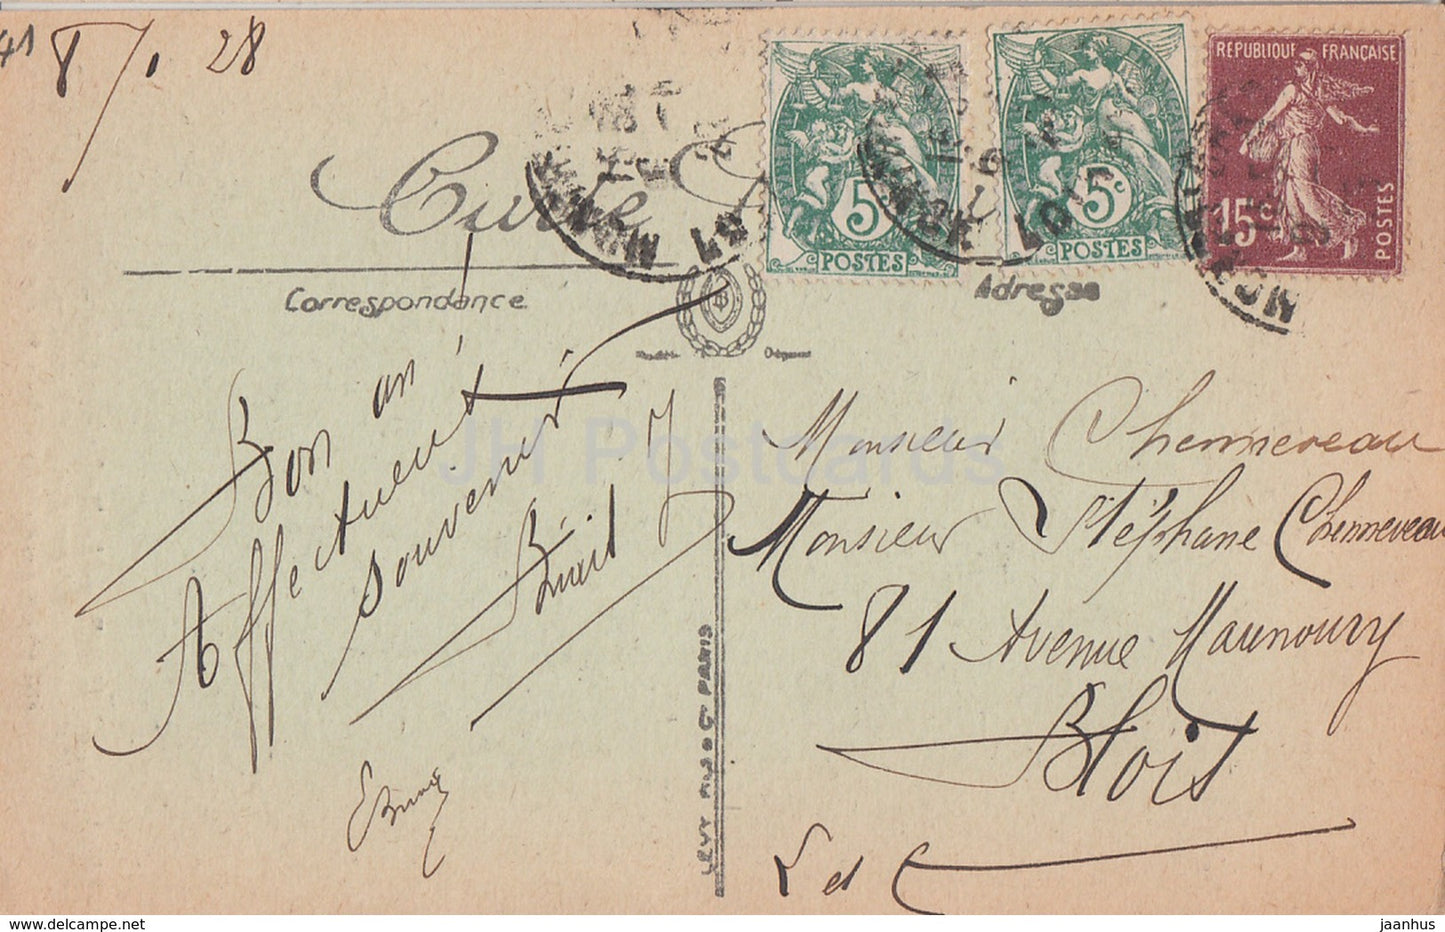 41
8/1 28
RÉPUBLIQUE FRANÇAISE
5c
POSTES
5c
POSTES
15c
POSTES
Correspondance
Adresse
Bon an
Affectueux
souvenir
JH Postcards
Monsieur Chennereau
Monsieur Stéphane Chenneveau
81 Avenue Maunoury
Blois
L et C
LEVY FILS & Cie PARIS
www.delcampe.net
jaanhus